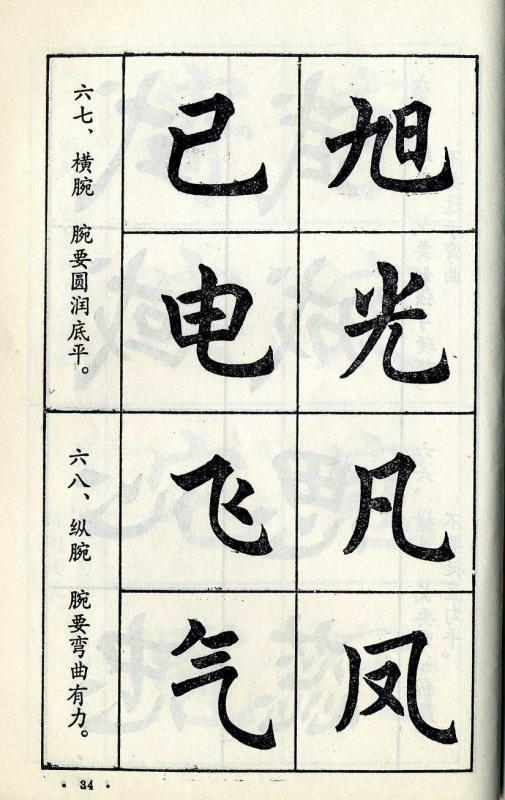 旭光
己电
六七、横腕 腕要圆润底平。
凡凤
飞气
六八、纵腕 腕要弯曲有力。
· 34 ·